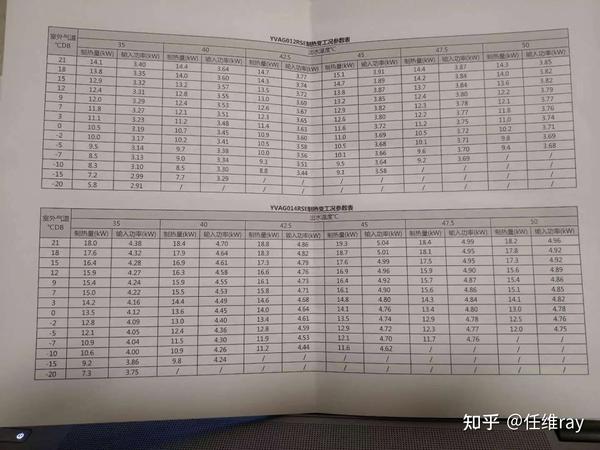 YVAG012RSE制热变工况参数表
室外气温 ℃DB 出水温度℃
35 40 42.5 45 47.5 50
制热量(kW) 输入功率(kW) 制热量(kW) 输入功率(kW) 制热量(kW) 输入功率(kW) 制热量(kW) 输入功率(kW) 制热量(kW) 输入功率(kW) 制热量(kW) 输入功率(kW)
21 14.1 3.40 14.4 3.64 14.7 3.77 15.1 3.91 14.4 3.87 14.3 3.85
18 13.8 3.35 14.0 3.60 14.3 3.74 14.7 3.89 14.2 3.84 14.0 3.82
15 12.9 3.32 13.2 3.57 13.5 3.72 13.8 3.87 13.7 3.84 13.6 3.82
12 12.4 3.31 12.8 3.55 13.0 3.70 13.2 3.85 12.4 3.80 12.2 3.79
9 12.0 3.29 12.4 3.53 12.6 3.67 12.9 3.82 12.3 3.78 12.1 3.77
7 11.8 3.27 12.1 3.51 12.3 3.65 12.6 3.80 12.2 3.77 11.8 3.76
3 11.1 3.23 11.2 3.48 11.4 3.63 11.6 3.72 11.2 3.75 11.0 3.74
0 10.5 3.19 10.7 3.45 10.9 3.60 11.0 3.69 10.5 3.72 10.2 3.71
-2 10.0 3.17 10.2 3.41 10.5 3.58 10.5 3.68 10.1 3.71 9.8 3.69
-5 9.5 3.14 9.7 3.38 10.0 3.56 10.1 3.66 9.6 3.70 9.4 3.68
-7 8.5 3.13 9.0 3.34 9.3 3.51 9.5 3.64 9.2 3.69 / /
-10 8.3 3.10 8.5 3.30 8.8 3.44 9.1 3.58 / / / /
-15 7.2 2.99 7.7 3.29 / / / / / / / /
-20 5.8 2.91 / / / / / / / / / /
YVAG014RSE制热变工况参数表
室外气温 ℃DB 出水温度℃
35 40 42.5 45 47.5 50
制热量(kW) 输入功率(kW) 制热量(kW) 输入功率(kW) 制热量(kW) 输入功率(kW) 制热量(kW) 输入功率(kW) 制热量(kW) 输入功率(kW) 制热量(kW) 输入功率(kW)
21 18.0 4.38 18.4 4.70 18.8 4.86 19.3 5.04 18.4 4.99 18.2 4.96
18 17.6 4.32 17.9 4.64 18.3 4.82 18.7 5.01 18.1 4.95 17.8 4.92
15 16.4 4.28 16.9 4.61 17.3 4.79 17.6 4.99 17.5 4.95 17.3 4.92
12 15.9 4.27 16.3 4.58 16.6 4.76 16.9 4.96 15.9 4.90 15.6 4.89
9 15.4 4.24 15.9 4.55 16.1 4.73 16.4 4.92 15.7 4.87 15.4 4.86
7 15.0 4.22 15.5 4.53 15.8 4.71 16.1 4.90 15.6 4.86 15.1 4.85
3 14.2 4.16 14.4 4.49 14.6 4.68 14.8 4.80 14.3 4.84 14.1 4.82
0 13.5 4.12 13.6 4.45 14.0 4.64 14.1 4.76 13.4 4.80 13.0 4.78
-2 12.8 4.09 13.0 4.40 13.4 4.61 13.5 4.74 12.9 4.78 12.5 4.76
-5 12.1 4.05 12.4 4.36 12.8 4.59 12.9 4.72 12.3 4.77 12.0 4.75
-7 10.9 4.04 11.5 4.30 11.9 4.53 12.1 4.70 11.7 4.76 / /
-10 10.6 4.00 10.9 4.26 11.2 4.44 11.6 4.62 / / / /
-15 9.2 3.86 9.8 4.24 / / / / / / / /
-20 7.3 3.75 / / / / / / / / / /
知乎 @任维ray